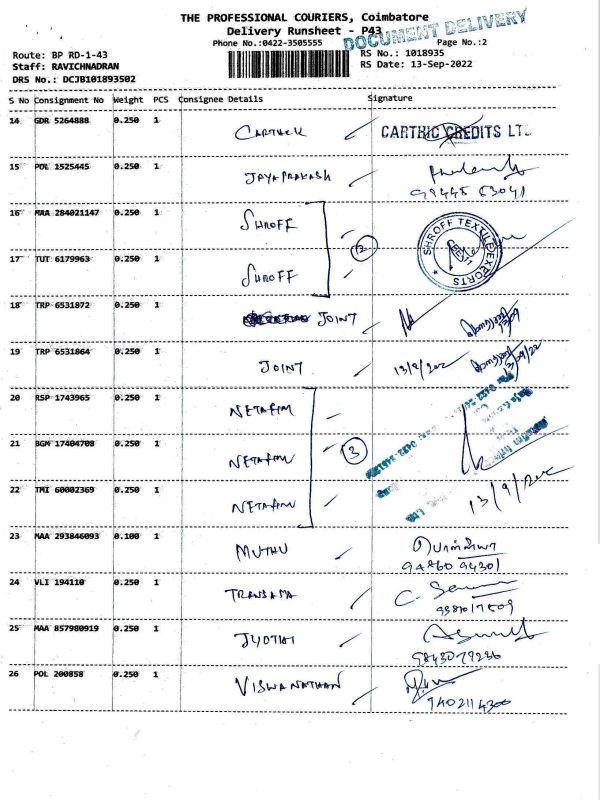 THE PROFESSIONAL COURIERS, Coimbatore
Delivery Runsheet - P43
DOCUMENT DELIVERY
Phone No.:0422-3505555 Page No.:2
Route: BP RD-1-43 RS No.: 1018935
Staff: RAVICHNADRAN RS Date: 13-Sep-2022
DRS No.: DCJB101893502
S No Consignment No Weight PCS Consignee Details Signature
14 GDR 5264888 0.250 1 CARTHICK CARTHIC CREDITS LTD
15 POL 1525445 0.250 1 JAYA PRAKASH
99445 53041
16 MAA 284021147 0.250 1 SHROFF
2 SHROFF TEXTILE EXPORTS
17 TUT 6179963 0.250 1 SHROFF
18 TRP 6531872 0.250 1 JOINT
19 TRP 6531864 0.250 1 JOINT 13/9/202
20 RSP 1743965 0.250 1 NETAFIM
21 BGM 17404708 0.250 1 NETAFIM 3
22 TMI 60002369 0.250 1 NETAFIM 13/9/202
23 MAA 293846093 0.100 1 MUTHU
94860 94301
24 VLI 194110 0.250 1
25 MAA 857980919 0.250 1 JYOTHI
9843079236
26 POL 200858 0.250 1 VISWANATHAN
7402114300